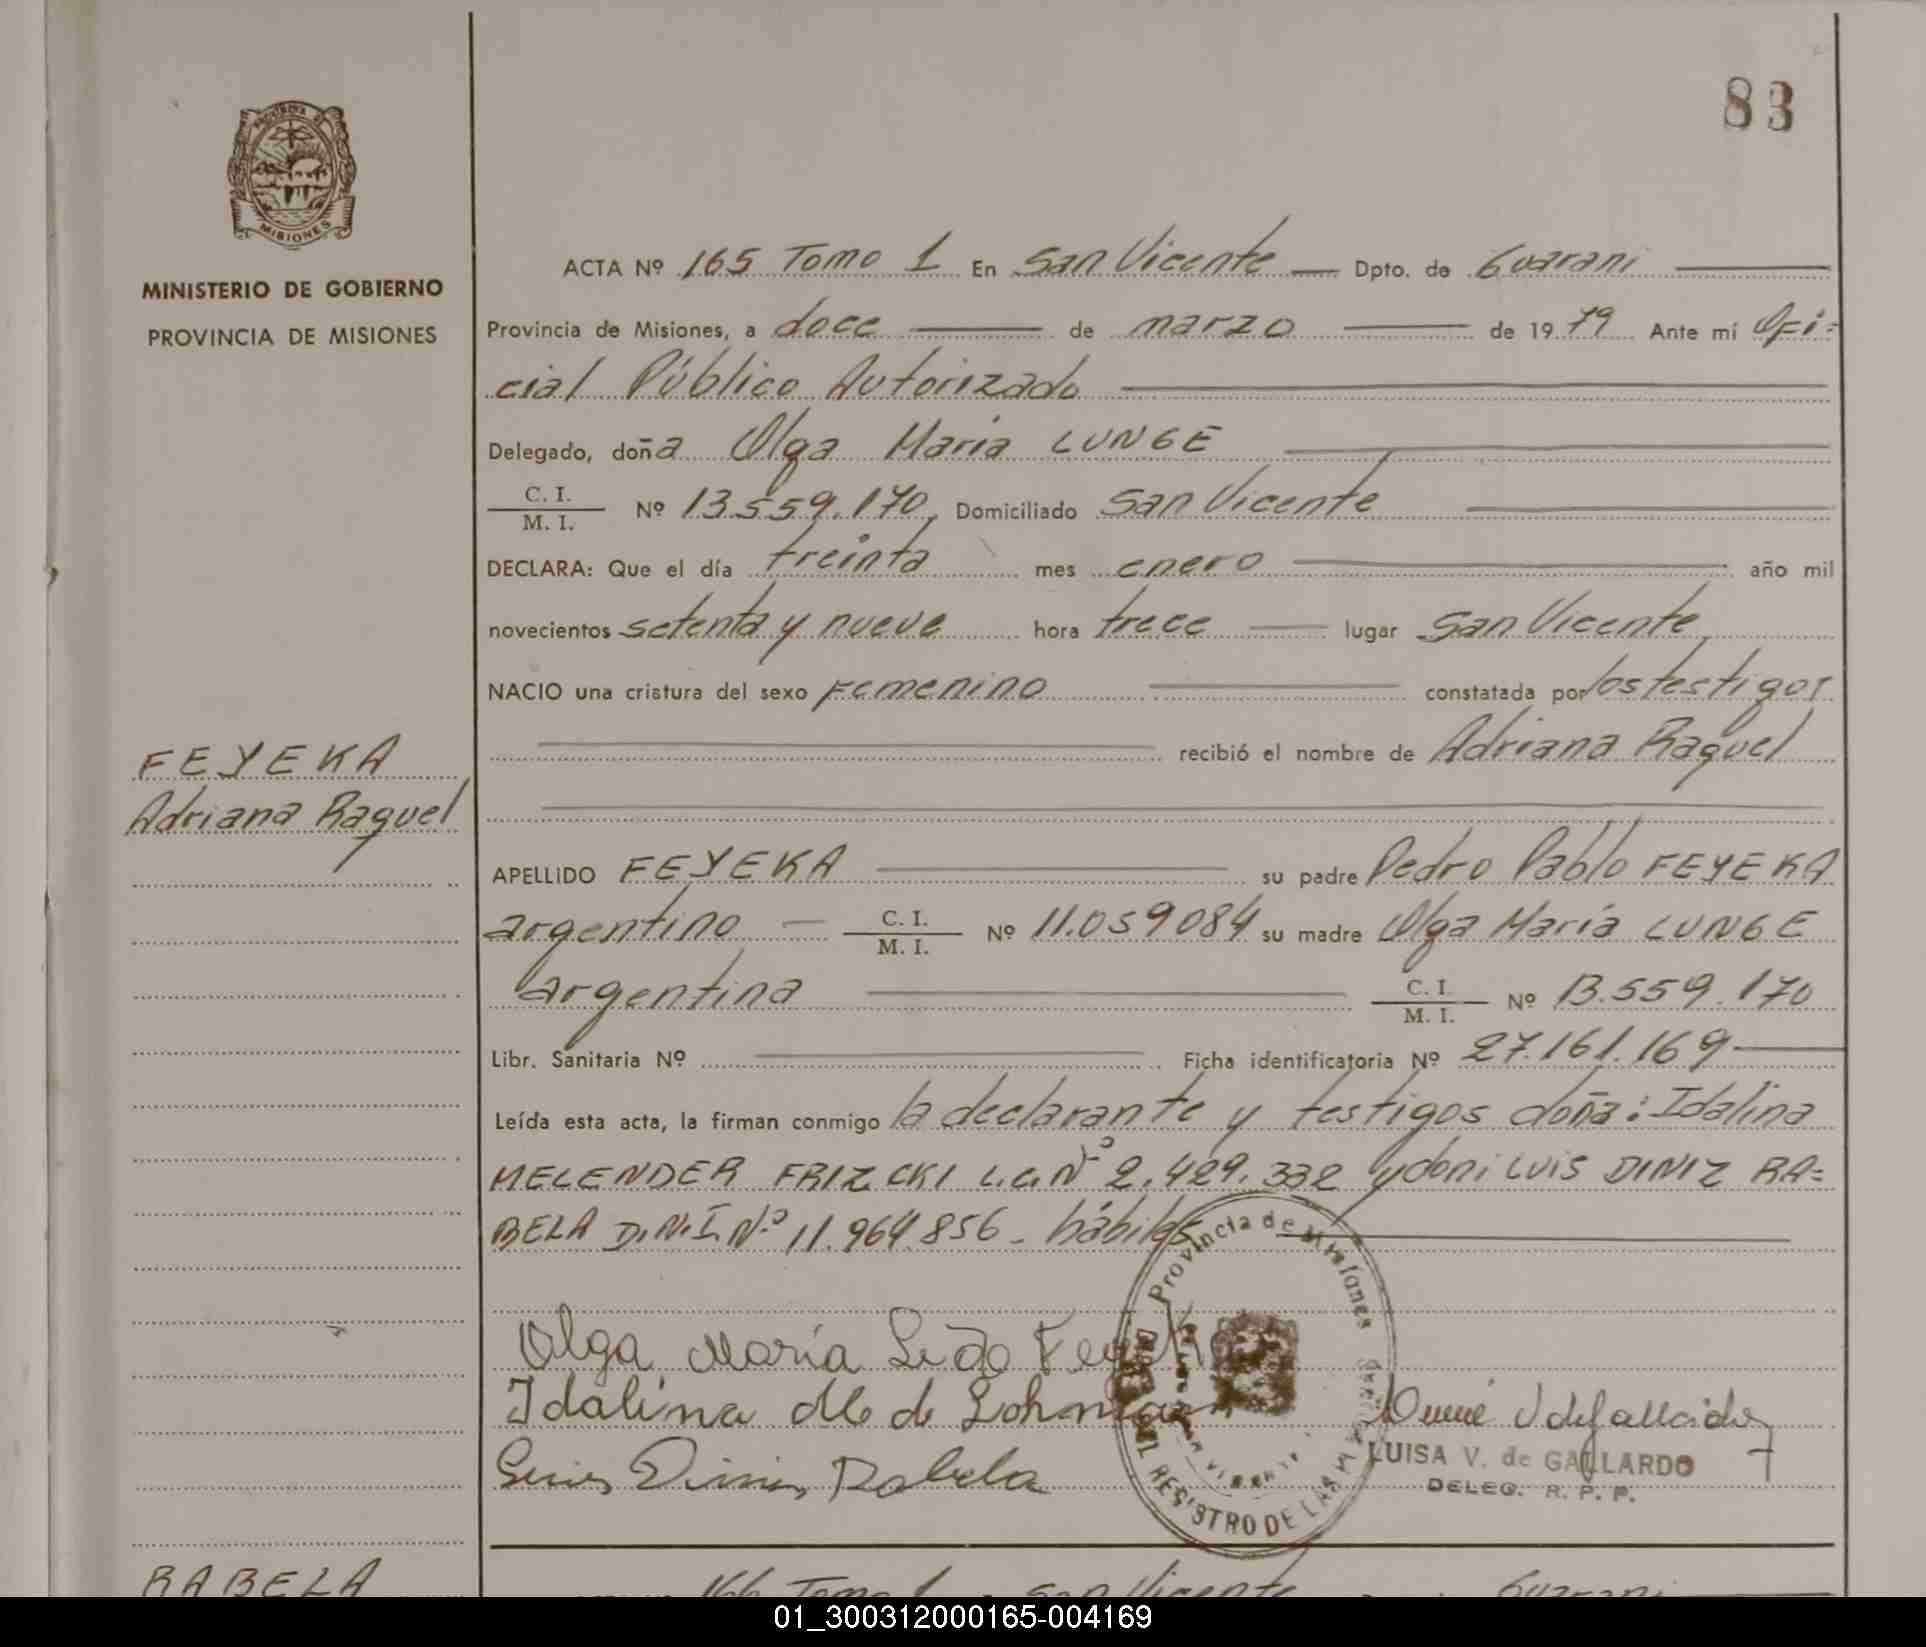 83
PROVINCIA DE
MISIONES
MINISTERIO DE GOBIERNO
PROVINCIA DE MISIONES
ACTA Nº 165 Tomo 1 En San Vicente Dpto. de Guarani
Provincia de Misiones, a doce de marzo de 1979 Ante mí Ofi=
cial Público Autorizado
Delegado, doña Olga Maria LUNGE
C. I.
M. I. Nº 13.559.170, Domiciliado San Vicente
DECLARA: Que el día treinta mes enero año mil
novecientos setenta y nueve hora trece lugar San Vicente
NACIO una criatura del sexo Femenino constatada por los testigos
recibió el nombre de Adriana Raquel
FEYEKA
Adriana Raquel
APELLIDO FEYEKA su padre Pedro Pablo FEYEKA
argentino C. I.
M. I. Nº 11.059084 su madre Olga María LUNGE
argentina C. I.
M. I. Nº 13.559.170
Libr. Sanitaria Nº Ficha identificatoria Nº 27.161.169
Leída esta acta, la firman conmigo la declarante y testigos doña: Idalina
MELENDER FRIZCKI L.C.Nº 2.429.332 y don: LUIS DINIZ RA=
BELA D.N.I.Nº 11.964.856 - hábiles
Provincia de Misiones
REGISTRO DE LAS
Olga María
Idalina M. de Lohman
Luis Dinis Rabela
LUISA V. de GALLARDO
DELEG. R. P. P.
RABELA
166 Tomo 1 San Vicente Guarani
01_300312000165-004169